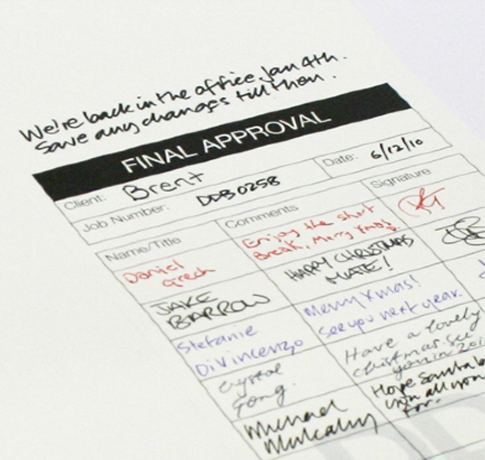 We're back in the office Jan 4th.
Save any changes till then.
FINAL APPROVAL
Client: Brent
Job Number: DDB0258 Date: 6/12/10
Name/Title Comments Signature
Daniel Grech Enjoy the short Break, Merry Xmas!
JAKE BARROW HAPPY CHRISTMAS MATE!
Stefanie DiVincenzo Merry Xmas! See you next year.
Crystal Fong. Have a lovely Christmas. See you in 201
Michael Mulcahy Hope Santa
for.